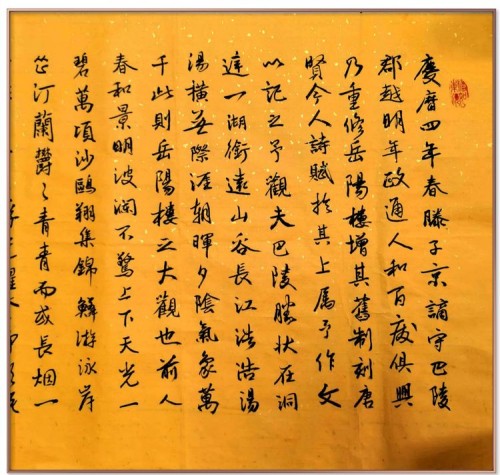 慶曆四年春滕子京謫守巴陵
郡越明年政通人和百廢俱興
乃重修岳陽樓增其舊制刻唐
賢今人詩賦於其上屬予作文
以記之予觀夫巴陵勝狀在洞
庭一湖銜遠山吞長江浩浩湯
湯橫無際涯朝暉夕陰氣象萬
千此則岳陽樓之大觀也前人
春和景明波瀾不驚上下天光一
碧萬頃沙鷗翔集錦鱗游泳岸
芷汀蘭鬱々青青而或長烟一